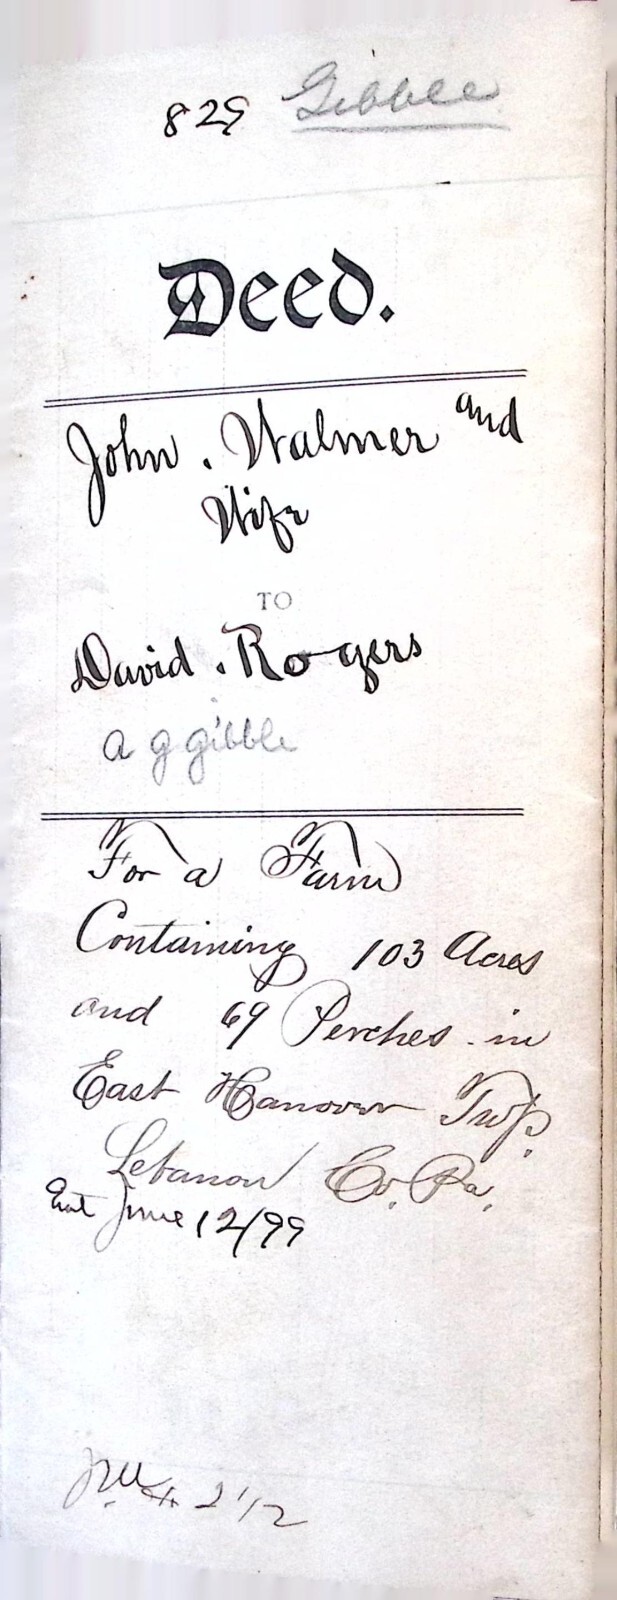 829 Gibble
Deed.
John. Walmer and
Wife
TO
David. Rogers
a g gibble
For a Farm
Containing 103 Acres
and 69 Perches in
East Hanover Twp.
Lebanon Co. Pa.
Ent June 12/99